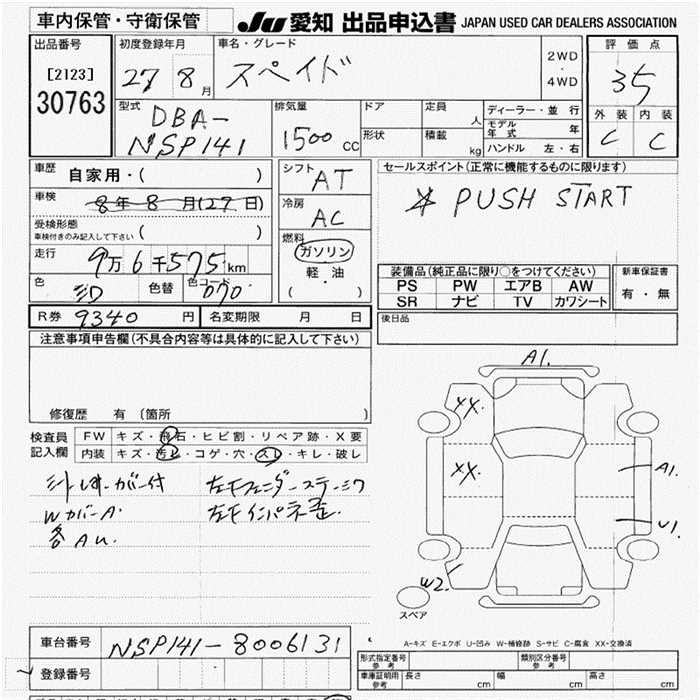 車内保管・守衛保管
JU 愛知 出品申込書 JAPAN USED CAR DEALERS ASSOCIATION
出品番号
[2123]
30763
初度登録年月
27 8月
車名・グレード
スペイド
2WD
・
4WD
評価点
35
外装 内装
C C
型式
DBA-
NSP141
排気量
1500cc
ドア
形状
定員 人
積載 kg
ディーラー・並行
モデル年式 年
ハンドル 左・右
車歴
自家用・( )
車検
8年8月(27日)
受検形態
車検付きのみ記入して下さい ( )
走行
9万6千575km
色
色替
色コード
070
シフト
AT
冷房
AC
燃料
ガソリン
軽・油
( ・ )
セールスポイント(正常に機能するものに限ります)
PUSH START
装備品(純正品に限り○をつけてください)
PS PW エアB AW
SR ナビ TV カワシート
新車保証書
有・無
R券 9340円
名変期限 月 日
後日品
注意事項申告欄(不具合内容等は具体的に記入して下さい)
修復歴 有 (箇所 )
検査員
記入欄
FW キズ・飛石・ヒビ割・リペア跡・X要
内装 キズ・汚レ・コゲ・穴・スレ・キレ・破レ
WカバーA.
各AU.
左右インパネ歪
A1.
XX.
XX.
A1.
U1.
W2.
スペア
A-キズ E-エクボ U-凹み W-補修跡 S-サビ C-腐食 XX-交換済
車台番号
NSP141-8006131
登録番号
形式指定番号
参考
類別区分番号
参考
車庫証明用
参考
長さ cm
幅 cm
高さ cm